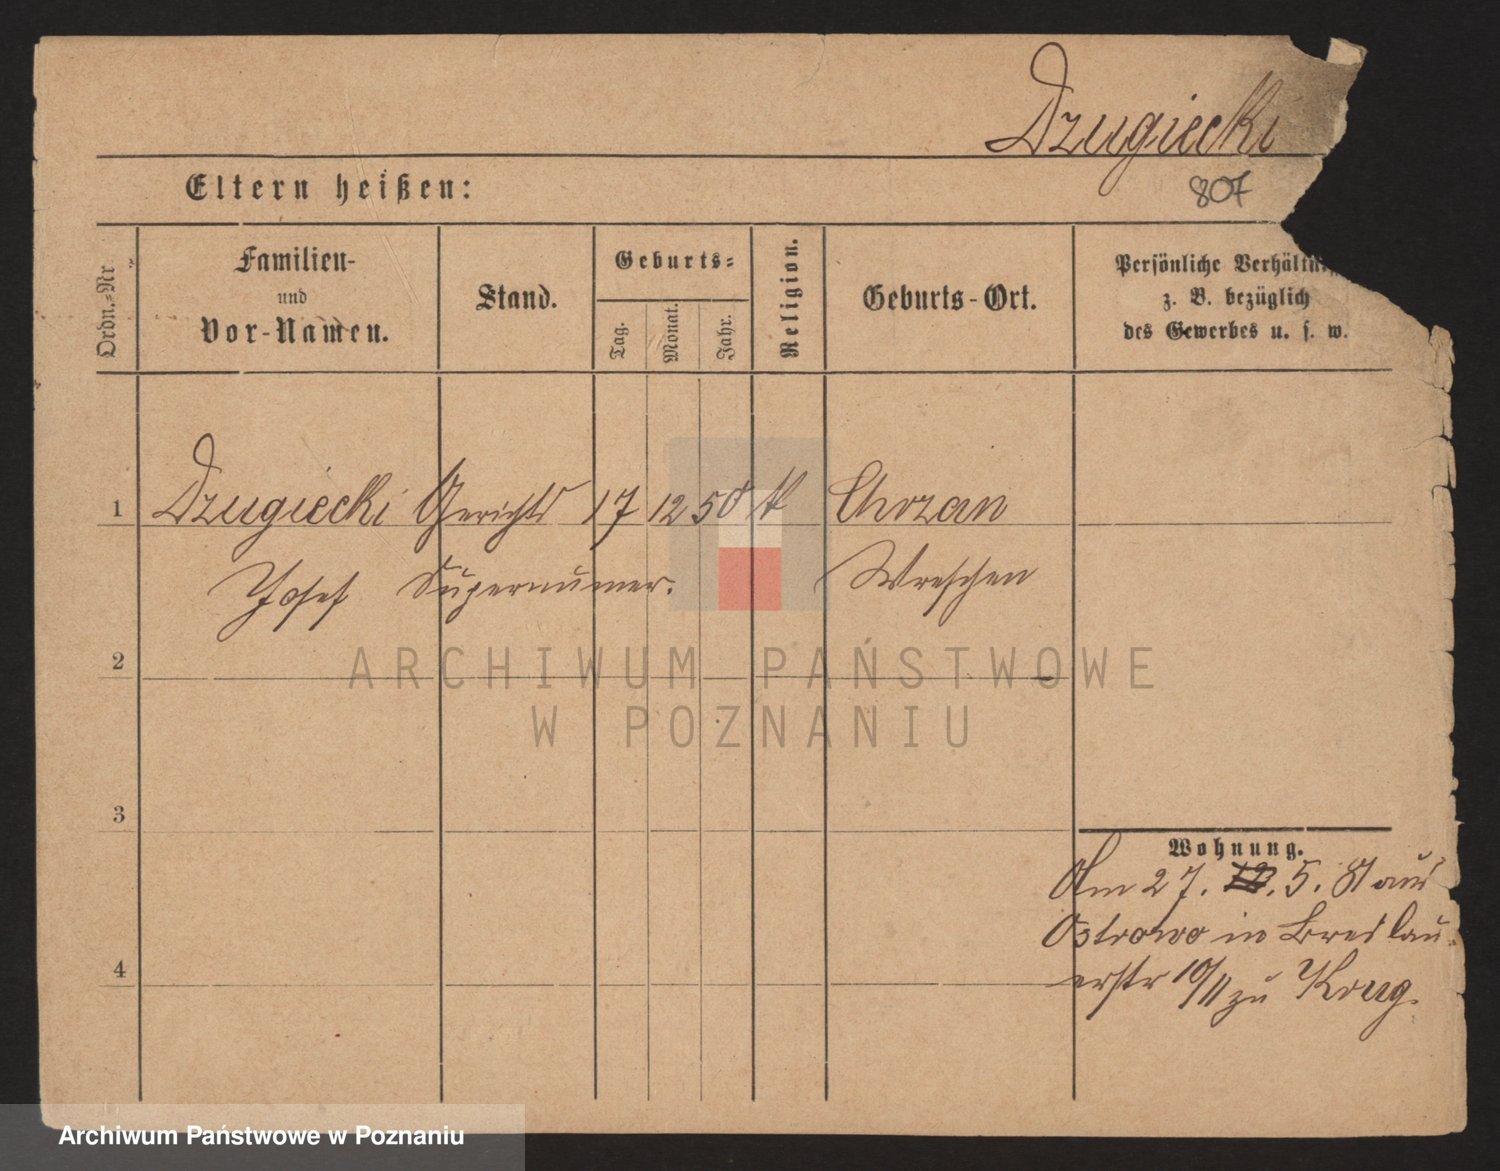 Dzugiecki
Eltern heißen:
807
Ordn.=Nr
Familien-
und
Vor-Namen.
Stand.
Geburts=
Tag.
Monat.
Jahr.
Religion.
Geburts-Ort.
Persönliche Verhältn
z. B. bezüglich
des Gewerbes u. s. w.
1 Dzugiecki Gerichts 17 12 50 k Chozan
Josef Supernumer. Wreschen
2
3
4
Wohnung.
Am 27. 5. 81 aus
Ostrowo in Breslau
erstr 10/11 zu Krug.
ARCHIWUM PAŃSTWOWE
W POZNANIU
Archiwum Państwowe w Poznaniu